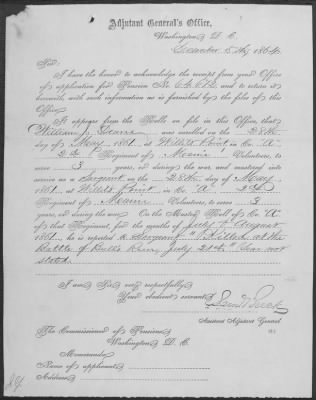 Adjutant General's Office,
Washington, D. C.
December 15th, 1864.
Sir:
I have the honor to acknowledge the receipt from your Office
of application for Pension No. and to return it
herewith, with such information as is furnished by the files of this
Office.
It appears from the Rolls on file in this Office, that
William J. Deane was enrolled on the 28th
day of May, 1861, at Willets Point in Co. A
2d Regiment of Maine Volunteers, to
serve 3 years, or during the war, and mustered into
service as a Sergeant on the 28th day of May
1861, at Willets Point, in Co. "A" 2d
Regiment of Maine Volunteers, to serve 3
years, or during the war. On the Muster Roll of Co. A
of that Regiment, for the months of July & August
1861, he is reported a Sergeant "Killed at the
Battle of Bull Run, July 21st"
stated.
I am Sir very respectfully,
Your obedient servant,
Assistant Adjutant General.
The Commissioner of Pensions
Washington, D. C.
Memoranda:
Name of applicant
Address